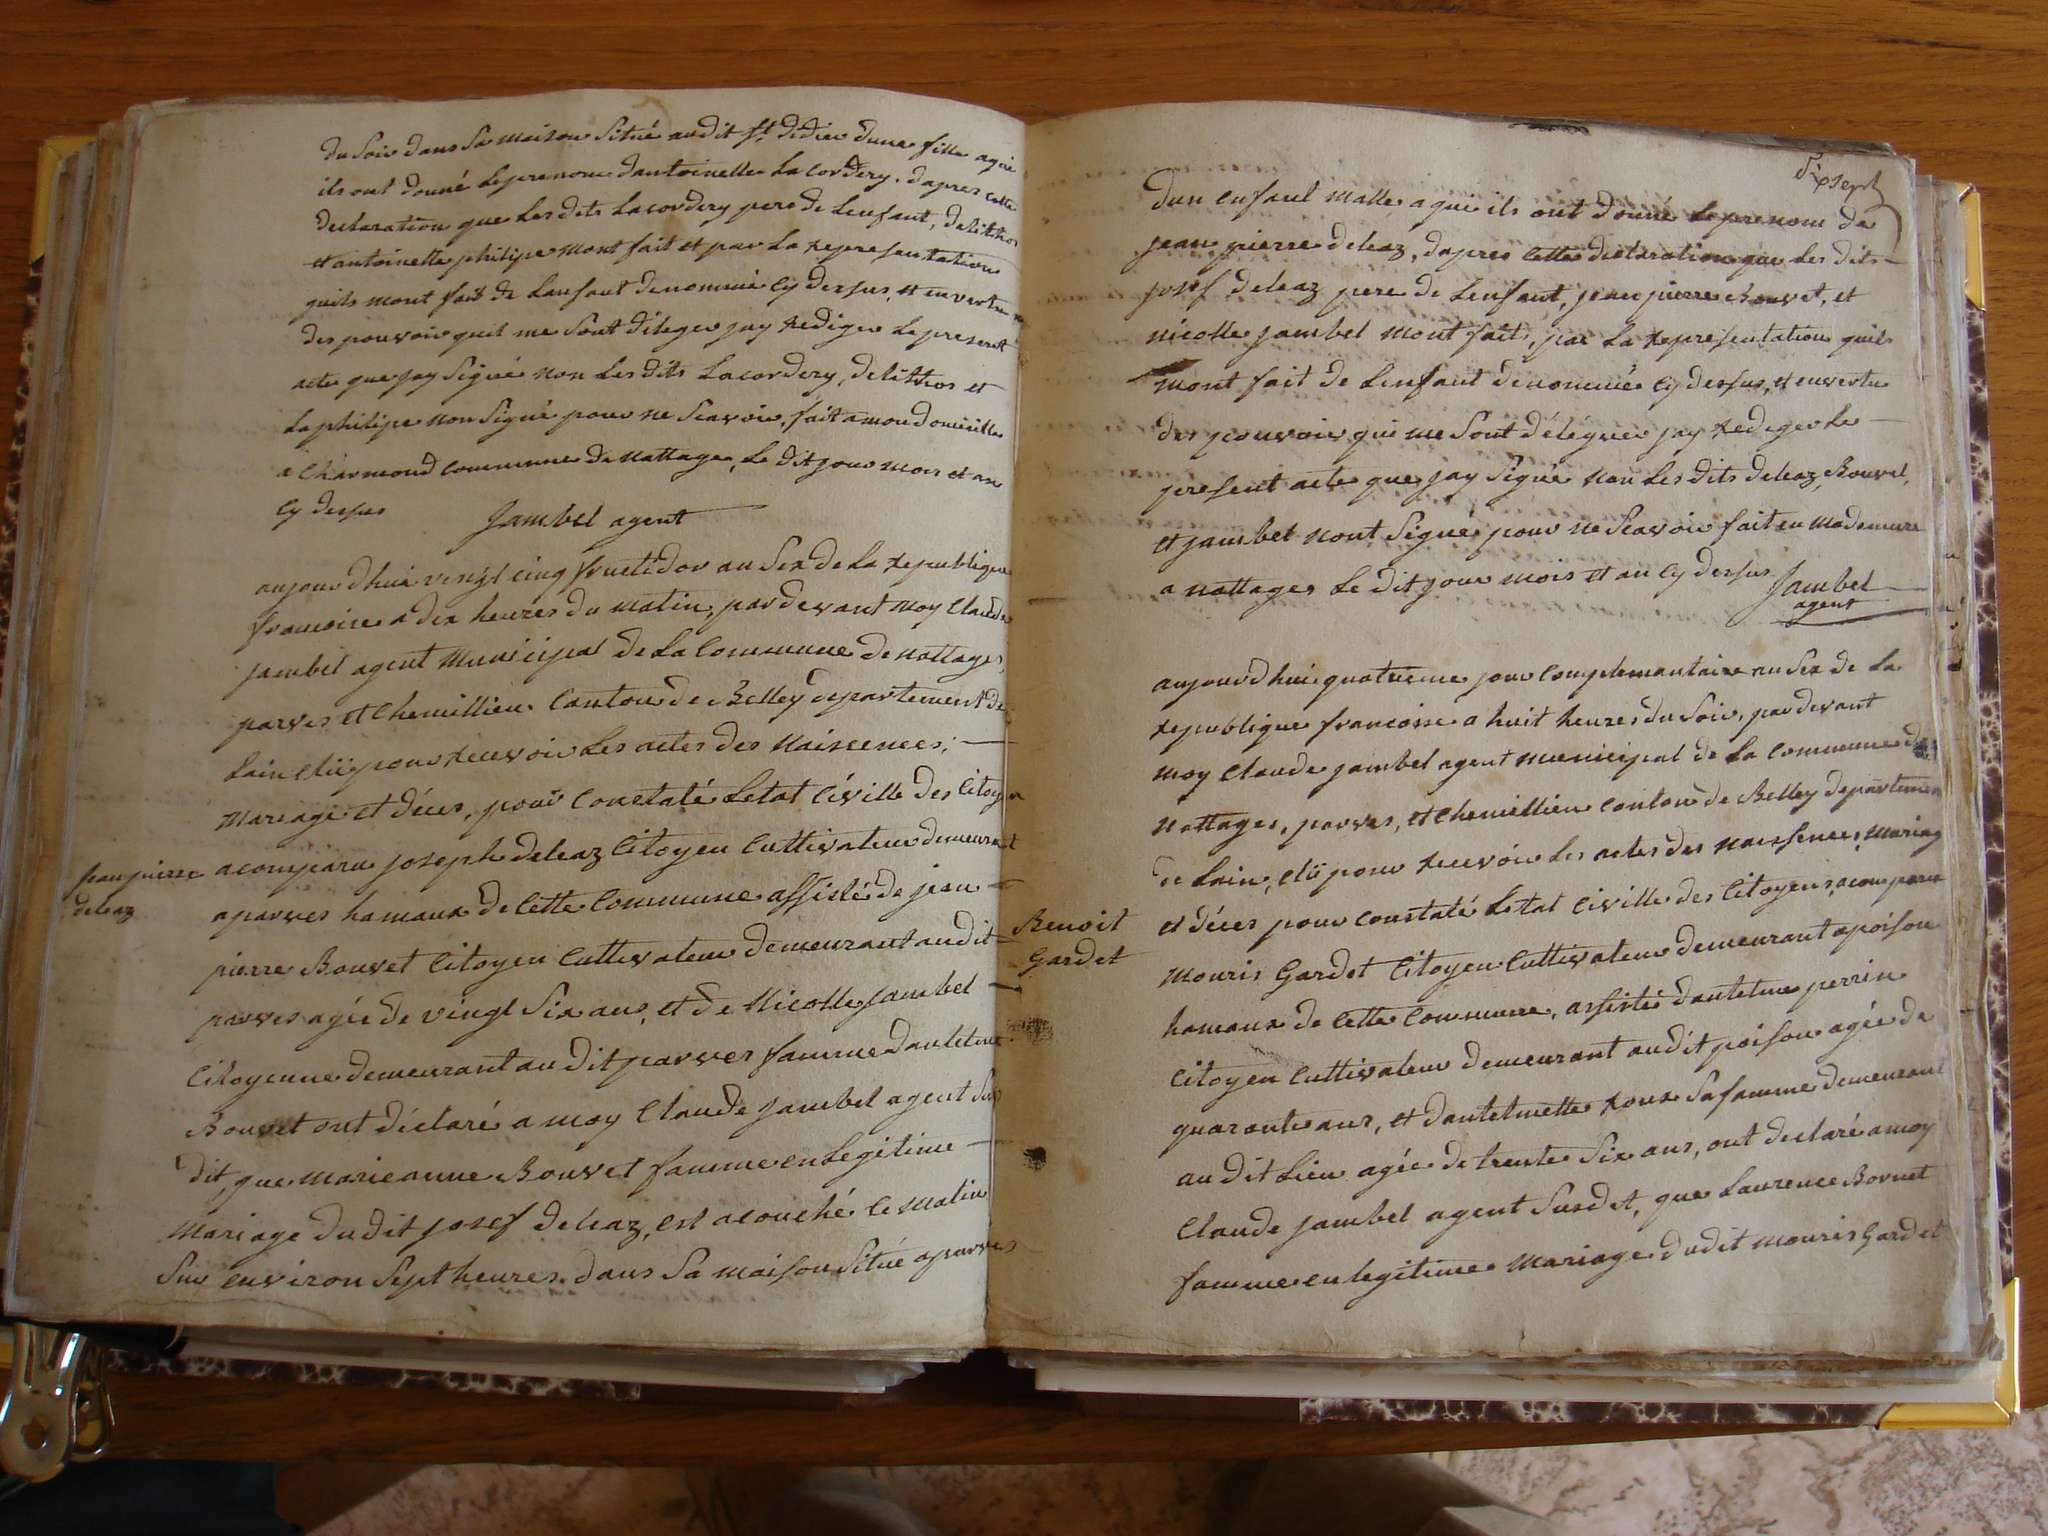 du soir dans sa maison situé audit st didier dune fille aqui
ils ont donné le prenom dantoinette La Cordery. dapres cette
declaration que Les dits Lacordery pere de Lenfant, delittios
et antoinette philipe mont fait et par La representation
quils mont fait de Lanfant denommé cy dessus, et en vertu
des pouvoir quil me sont déleger jay rediger Le present
acte que jay signé non Les dits Lacordery, delittios et
La philipe non signé pour ne scavoir, fait a mon domicille
a Charmond commune de nattage, Le dit jour mois et an
Cy dessus Jambel agent
aujourdhui vengt cinq fructidor an six de La republique
francoise a dix heures du matin, par devant moy Claude
jambel agent municipal de La Commune de nattages,
parves et Chemillieu Canton de Belley departement de
Lain elü pour recevoir Les actes des naiscences,
mareage et déces, pour Constaté Letat Civille des Citoyen
jean pierre
deleaz
a comparu joseph deleaz Citoyen Cultivateur demeurant
a parves hamaux de Cette Commune assisté de jean
pierre Bouvet Citoyen Cultivateur demeurant audit
parves agée de vingt six ans, et de Nicolle jambel
Citoyenne demeurant au dit parves famme dantelme
Bouvet ont déclaré a moy Claude jambel agent sus
dit, que marieanne Bouvet famme en Legitime
mariage du dit josef deleaz, est acouché Ce matin
sur environ sept heures dans sa maison situé a parves
dixsept
dun enfant malle a qui ils ont donné Le prenom de
jean pierre deleaz, dapres Cette déclaration que Les dits
josef deleaz pere de Lenfant, jean pierre Bouvet, et
nicolle jambel mont fait, par La representation quils
mont fait de Lenfant denommé Cy dessus, et en vertu
des pouvoir qui me sont déléguer jay rediger Le
present acte que jay signé non Les dits deleaz, Bouvet,
et jambel nont signé pour ne scavoir fait en ma demeure
a nattages Le dit jour mois et an cy dessus Jambel
agent
aujourdhui quatrieme jour Complemantaire an six de La
republique francoise a huit heures du soir, par devant
moy Claude jambel agent municipal de La Commune de
nattages, parves, et Chemillieu Canton de Belley departemen
de Lain, elü pour recevoir Les actes des naissences, mariag
et déces pour Constaté Letat Civille des Citoyens, a comparu
Benoit
Gardet
mouris Gardet Citoyen Cultivateur demeurant a poisou
hamaux de Cette Commune, assisté dantelme perrin
Citoyen Cultivateur demeurant audit poisou agée de
quarante ans, et dantelmette roux sa famme demeurant
au dit Lieu agée de trente six ans, ont declaré a moy
Claude jambel agent susdit, que Laurence Bornet
famme en legitime mariage dudit mouris Gardet